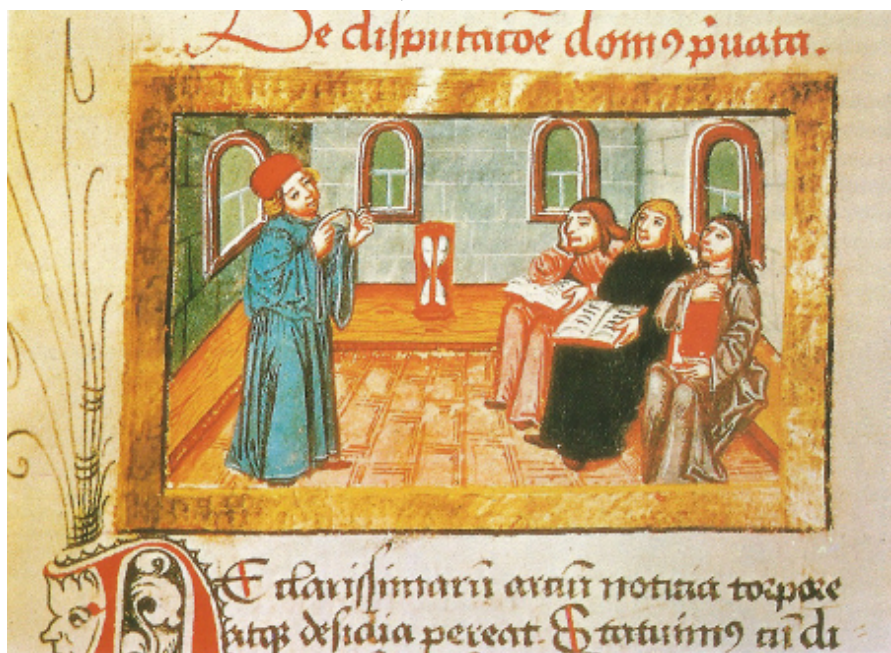 De disputacõe dom⁹ p̃uata.
NE clarissimarũ arciũ noticia torpore
atqꝫ desidia pereat. Statuim⁹ cũ di